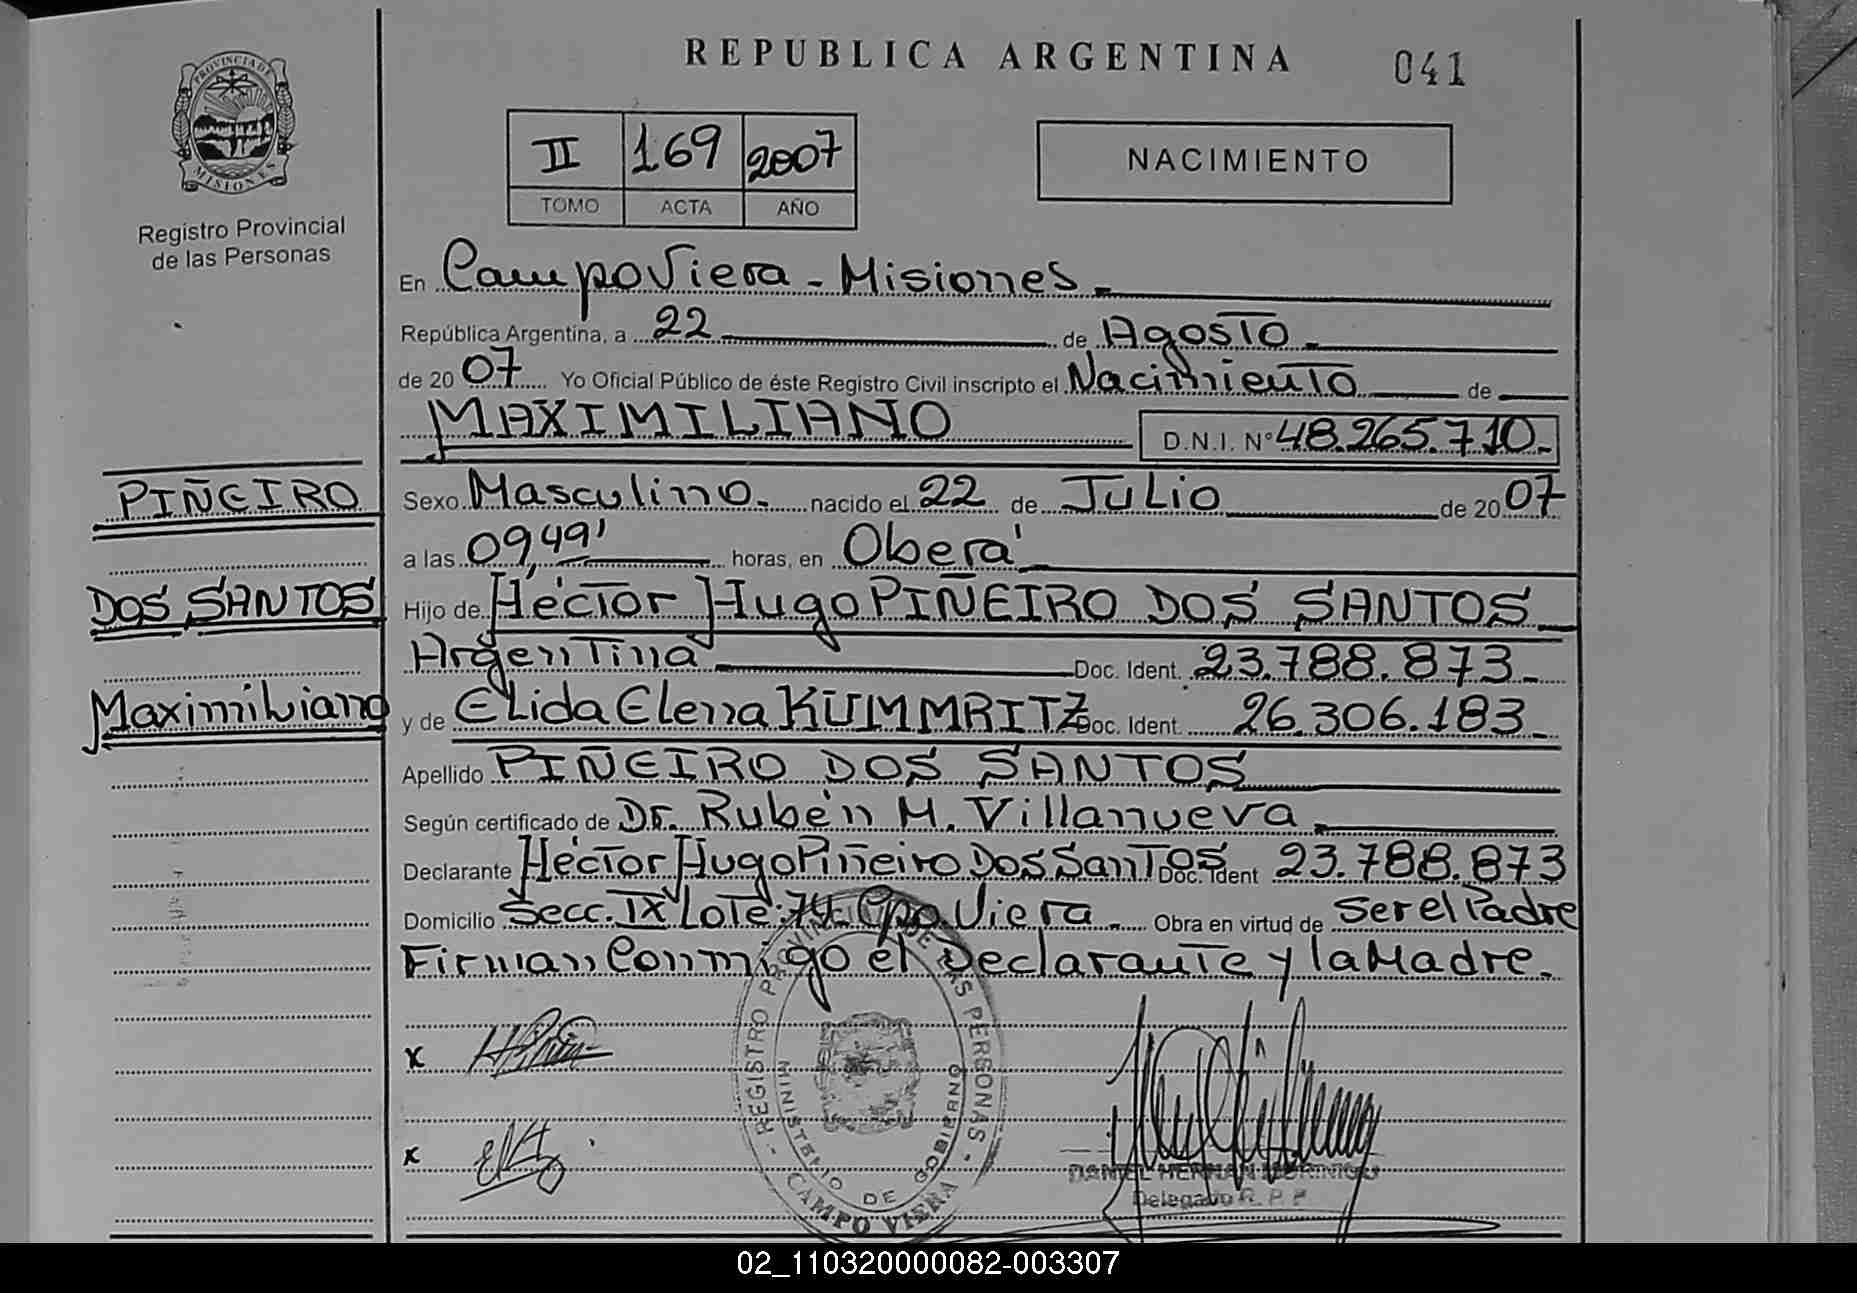 REPUBLICA ARGENTINA
041
PROVINCIA DE
MISIONES
Registro Provincial
de las Personas
II 169 2007
TOMO ACTA AÑO
NACIMIENTO
En Campo Viera - Misiones -
República Argentina, a 22 de Agosto -
de 20 07 Yo Oficial Público de éste Registro Civil inscripto el Nacimiento de
MAXIMILIANO D.N.I. N° 48.265.710.-
PIÑEIRO
DOS SANTOS
Maximiliano
Sexo Masculino - nacido el 22 de Julio de 20 07
a las 09,49' horas, en Oberá -
Hijo de Héctor Hugo PIÑEIRO DOS SANTOS -
Argentina Doc. Ident. 23.788.873 -
y de Elida Elena KUMMRITZ Doc. Ident. 26.306.183 -
Apellido PIÑEIRO DOS SANTOS
Según certificado de Dr. Rubén M. Villanueva -
Declarante Héctor Hugo Piñeiro Dos Santos Doc. Ident 23.788.873
Domicilio Secc. IX Lote: 74 Cpo. Viera - Obra en virtud de ser el Padre
Firman Conmigo el Declarante y la Madre.
x
x
REGISTRO PROVINCIAL DE LAS PERSONAS
MINISTERIO DE GOBIERNO
CAMPO VIERA
DANIEL HERNAN MORINIGO
Delegado R.P.P.
02_110320000082-003307